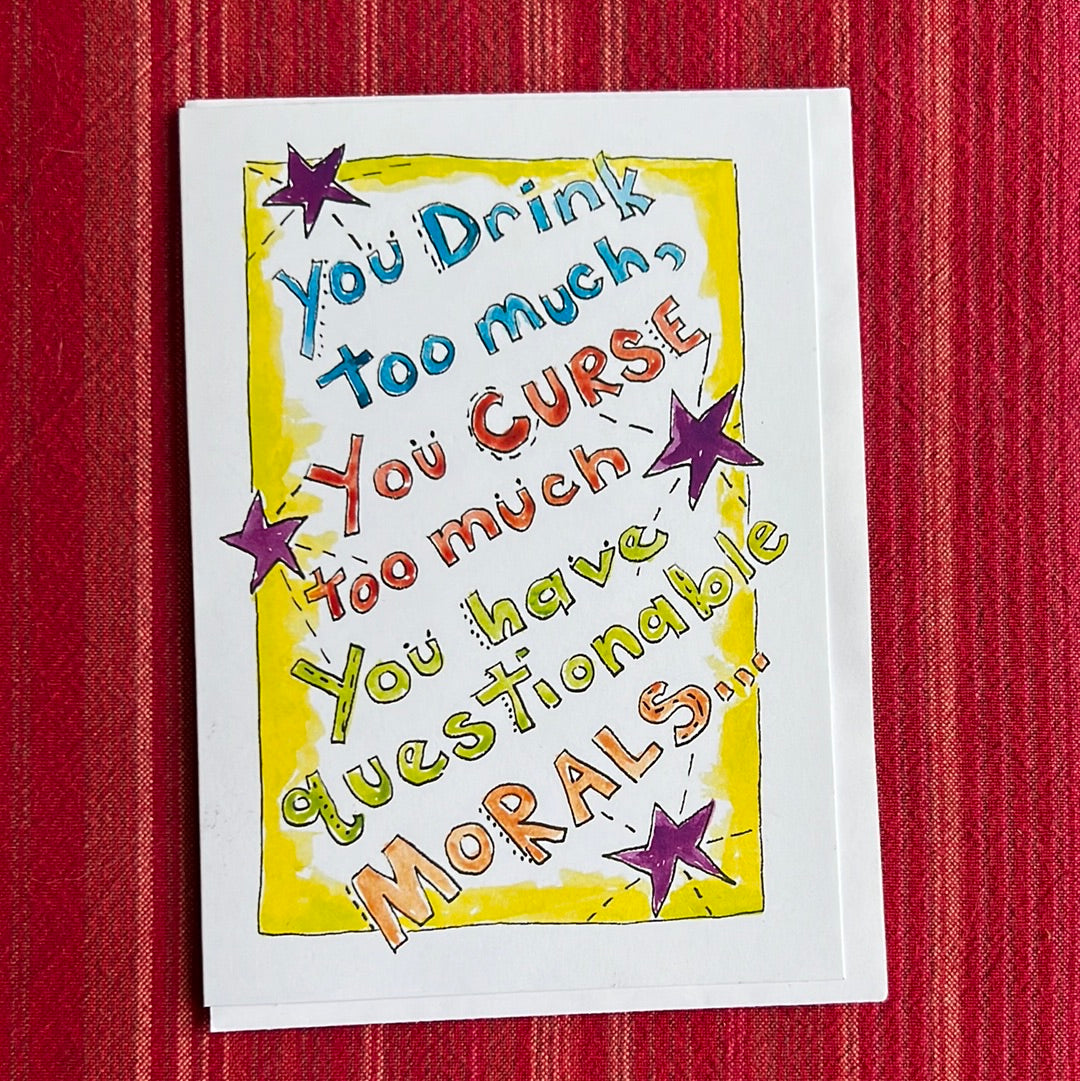 You Drink
too much,
You CURSE
too much
You have
questionable
MORALS...